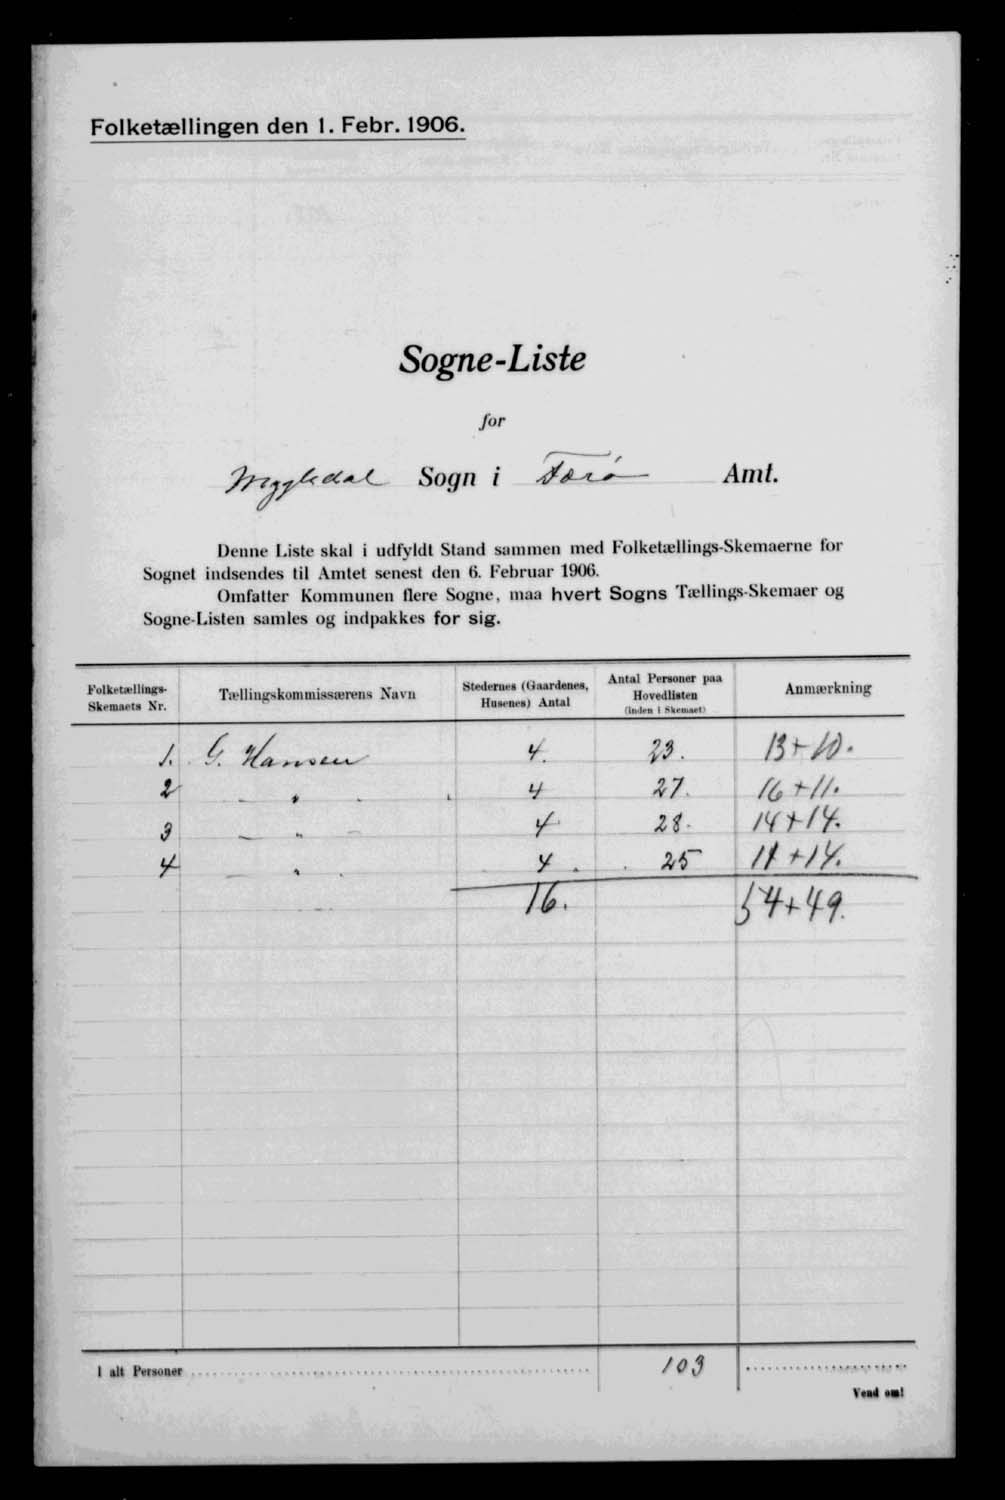 Folketællingen den 1. Febr. 1906.
Sogne-Liste
for
Mygledal Sogn i Færø Amt.
Denne Liste skal i udfyldt Stand sammen med Folketællings-Skemaerne for
Sognet indsendes til Amtet senest den 6. Februar 1906.
Omfatter Kommunen flere Sogne, maa hvert Sogns Tællings-Skemaer og
Sogne-Listen samles og indpakkes for sig.
Folketællings-Skemaets Nr. Tællingskommissærens Navn Stedernes (Gaardenes, Husenes) Antal Antal Personer paa Hovedlisten (inden i Skemaet) Anmærkning
1. G. Hansen 4. 23. 13+10.
2 — " — 4 27. 16+11.
3 — " — 4 28. 14+14.
4 — " — 4. 25 11+14.
16. 54+49.
I alt Personer 103
Vend om!